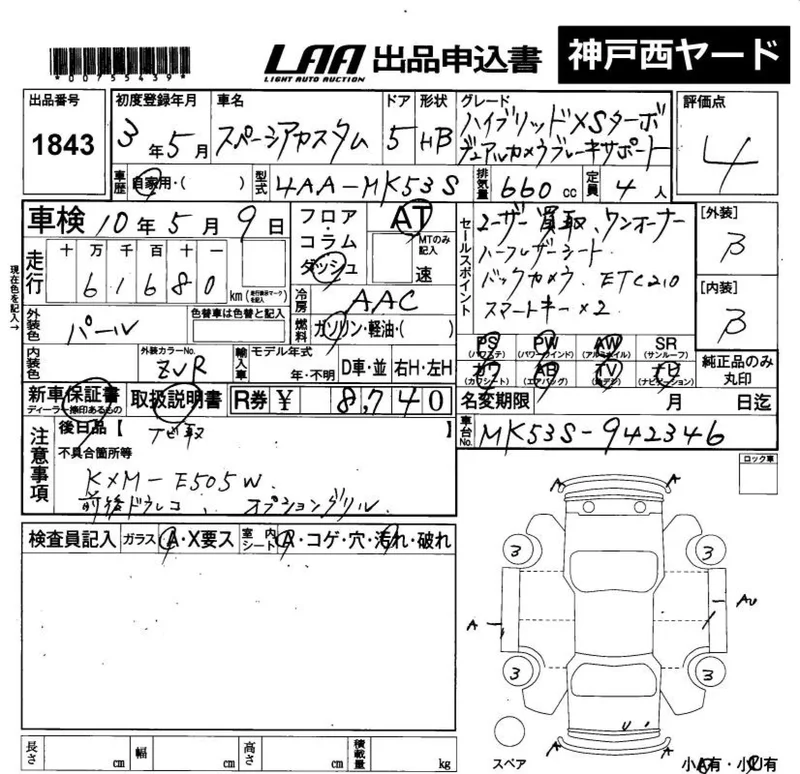 *00755439*
LAA 出品申込書 神戸西ヤード
LIGHT AUTO AUCTION
出品番号 初度登録年月 車名 ドア 形状 グレード 評価点
1843 3年5月 スペーシアカスタム 5 HB ハイブリッドXSターボ 4
デュアルカメラブレーキサポート
車歴 自家用・( ) 型式 4AA-MK53S 排気量 660cc 定員 4人
車検 10年5月9日 フロア・コラム・ダッシュ AT セールスポイント ユーザー買取、ワンオーナー 【外装】
MTのみ記入 ハーフレザーシート B
走行 十万千百十一 速 バックカメラ ETC2.0 【内装】
61680 km (走行表示マークを記入) 冷房 AAC スマートキー×2 B
現在色を記入→
外装色 パール 色替車は色替と記入 燃料 ガソリン・軽油・( ) PS PW AW SR
(パワステ) (パワーウインド) (アルミホイル) (サンルーフ)
内装色 外装カラーNo. ZVR 輸入車 モデル年式 年・不明 D車・並 右H・左H カワ AB TV ナビ 純正品のみ丸印
(カワシート) (エアバッグ) (地デジ) (ナビゲーション)
新車保証書 取扱説明書 R券 ¥ 8,740 名変期限 月 日迄
ディーラー捺印あるもの
注意事項 後日品【 ナビ取 】 車台No. MK53S-942346
不具合箇所等 ロック車
KXM-E505W
前後ドラレコ、オプショングリル
検査員記入 ガラス A・X要ス 室内シート A・コゲ・穴・汚れ・破れ
A A
3 3
A AU
3 3
U
A A
スペア 小A有・小U有
長さ cm 幅 cm 高さ cm 積載量 kg